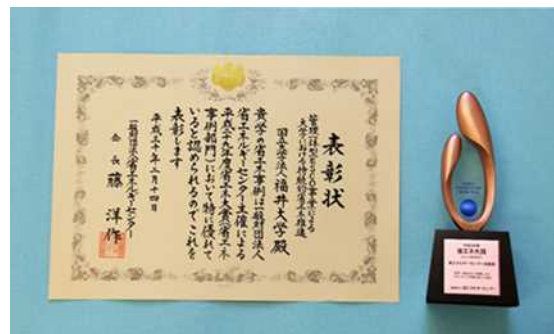 表彰状
管理一体型ESCO事業による
大学における持続的省エネ推進
国立大学法人 福井大学 殿
貴学の省エネ事例は一般財団法人
省エネルギーセンター主催による
平成二十九年度省エネ大賞(省エネ
事例部門)において特に優れて
いると認められるのでこれを
表彰します
平成三十年二月十四日
一般財団法人省エネルギーセンター
会長 藤 洋作
省エネ大賞